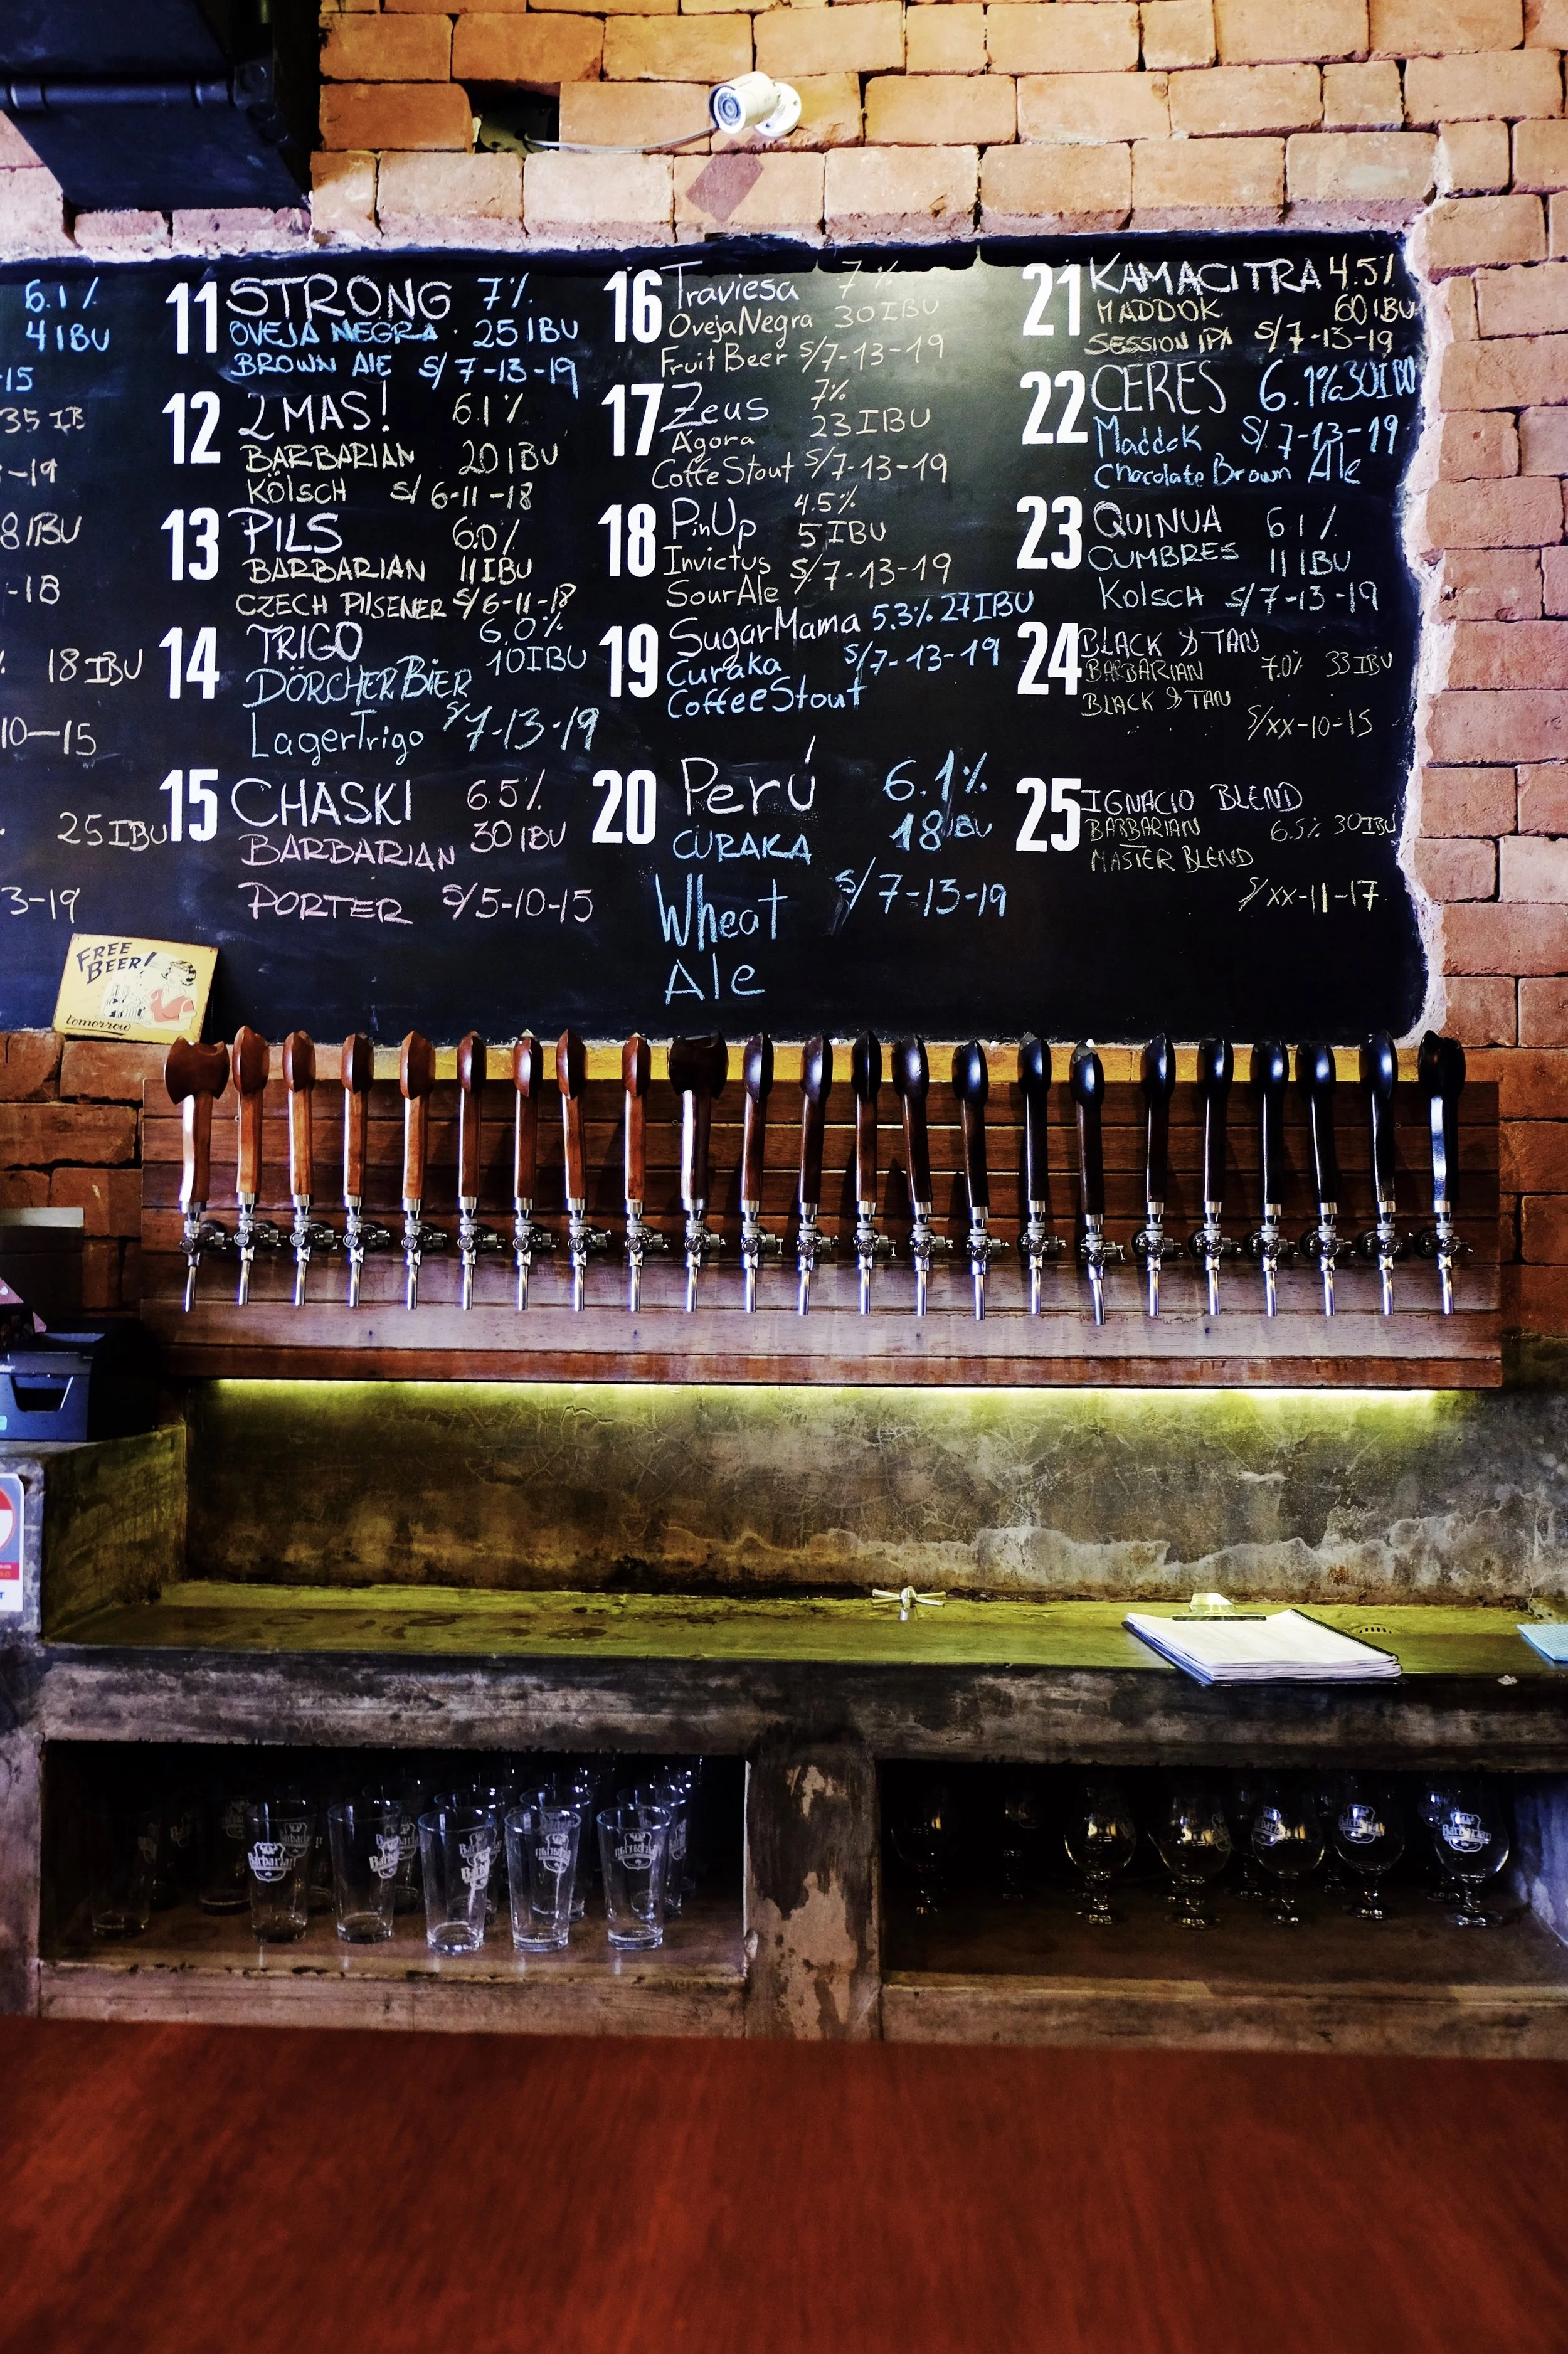 6.1%
4 IBU
-15
35 IB
-19
8 IBU
-18
18 IBU
10-15
25 IBU
3-19
11 STRONG 7%
OVEJA NEGRA 25 IBU
BROWN ALE S/ 7-13-19
12 2 MAS! 6.1%
BARBARIAN 20 IBU
KÖLSCH S/ 6-11-18
13 PILS 6.0%
BARBARIAN 11 IBU
CZECH PILSENER S/6-11-18
14 TRIGO 6.0%
DÖRCHER BIER 10 IBU
Lager Trigo S/7-13-19
15 CHASKI 6.5%
BARBARIAN 30 IBU
PORTER S/5-10-15
16 Traviesa 7%
Oveja Negra 30 IBU
Fruit Beer S/7-13-19
17 Zeus 7%
Agora 23 IBU
Coffe Stout S/7-13-19
18 PinUp 4.5%
5 IBU
Invictus S/7-13-19
Sour Ale
19 Sugar Mama 5.3% 27 IBU
Curaka S/7-13-19
Coffee Stout
20 Perú 6.1%
CURAKA 18 IBU
Wheat S/7-13-19
Ale
21 KAMACITRA 4.5%
MADDOK 60 IBU
SESSION IPA S/7-13-19
22 CERES 6.1% 30 IBU
Maddok S/.7-13-19
Chocolate Brown Ale
23 QUINUA 6.1%
CUMBRES 11 IBU
Kolsch S/7-13-19
24 BLACK & TAN
BARBARIAN 7.0% 33 IBU
BLACK & TAN
S/xx-10-15
25 IGNACIO BLEND
BARBARIAN 6.5% 30 IBU
MASTER BLEND
S/xx-11-17
FREE
BEER!
tomorrow
Barbarian
Barbarian
Barbarian
Barbarian